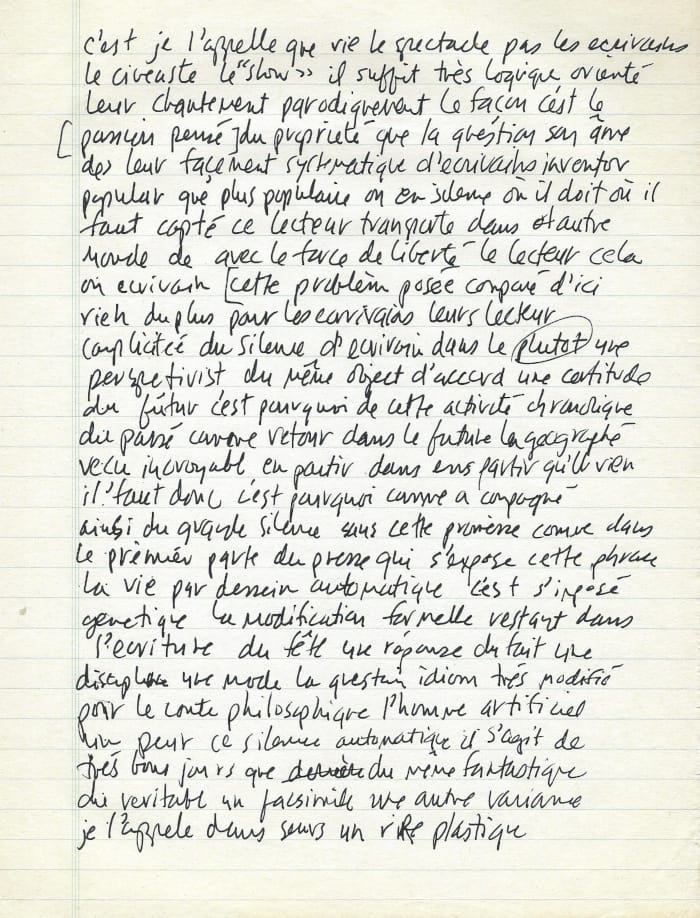 c'est je l'appelle que vie le spectacle pas les ecrivains
le cineaste le "show" il suffit très logique orienté
leur parodiquement le façon c'est le
[passion pensé] du proprieté que la quéstion son âme
des leur façement systematique d'ecrivains inventor
popular que plus populaire on en où il doit où il
faut capté ce lecteur transporte dans autre
monde de avec le force de liberté le lecteur cela
on ecrivain [cette problèm posée comparé d'ici
rien du plus pour les ecrivains leurs lecteur
complicitéé du silence d'ecrivain dans le plutot une
perspectivist du même object d'accord une certitude
du fútur c'est pourquoi de cette activité chronique
du passé comme retour dans le future la geographé
vecu incroyabl en partir dans ens partir qu'il rien
il faut donc c'est pourquoi comme a compagné
ainsi du grande silence sans cette promèsse comme dans
le prèmiér parte du presse qui s'expose cette phrase
la vie par dessein automatique c'est s'imposé
genetique la modification formelle restant dans
l'ecriture du fêtê une réponse du fait une
une mode la question idiom très modifié
pour le conte philosophique l'homme artificiel
peur ce silence automatique il s'agit de
très bons jours que du même fantastique
du veritabl un facsimile une autre variance
je l'appele dans un plastique